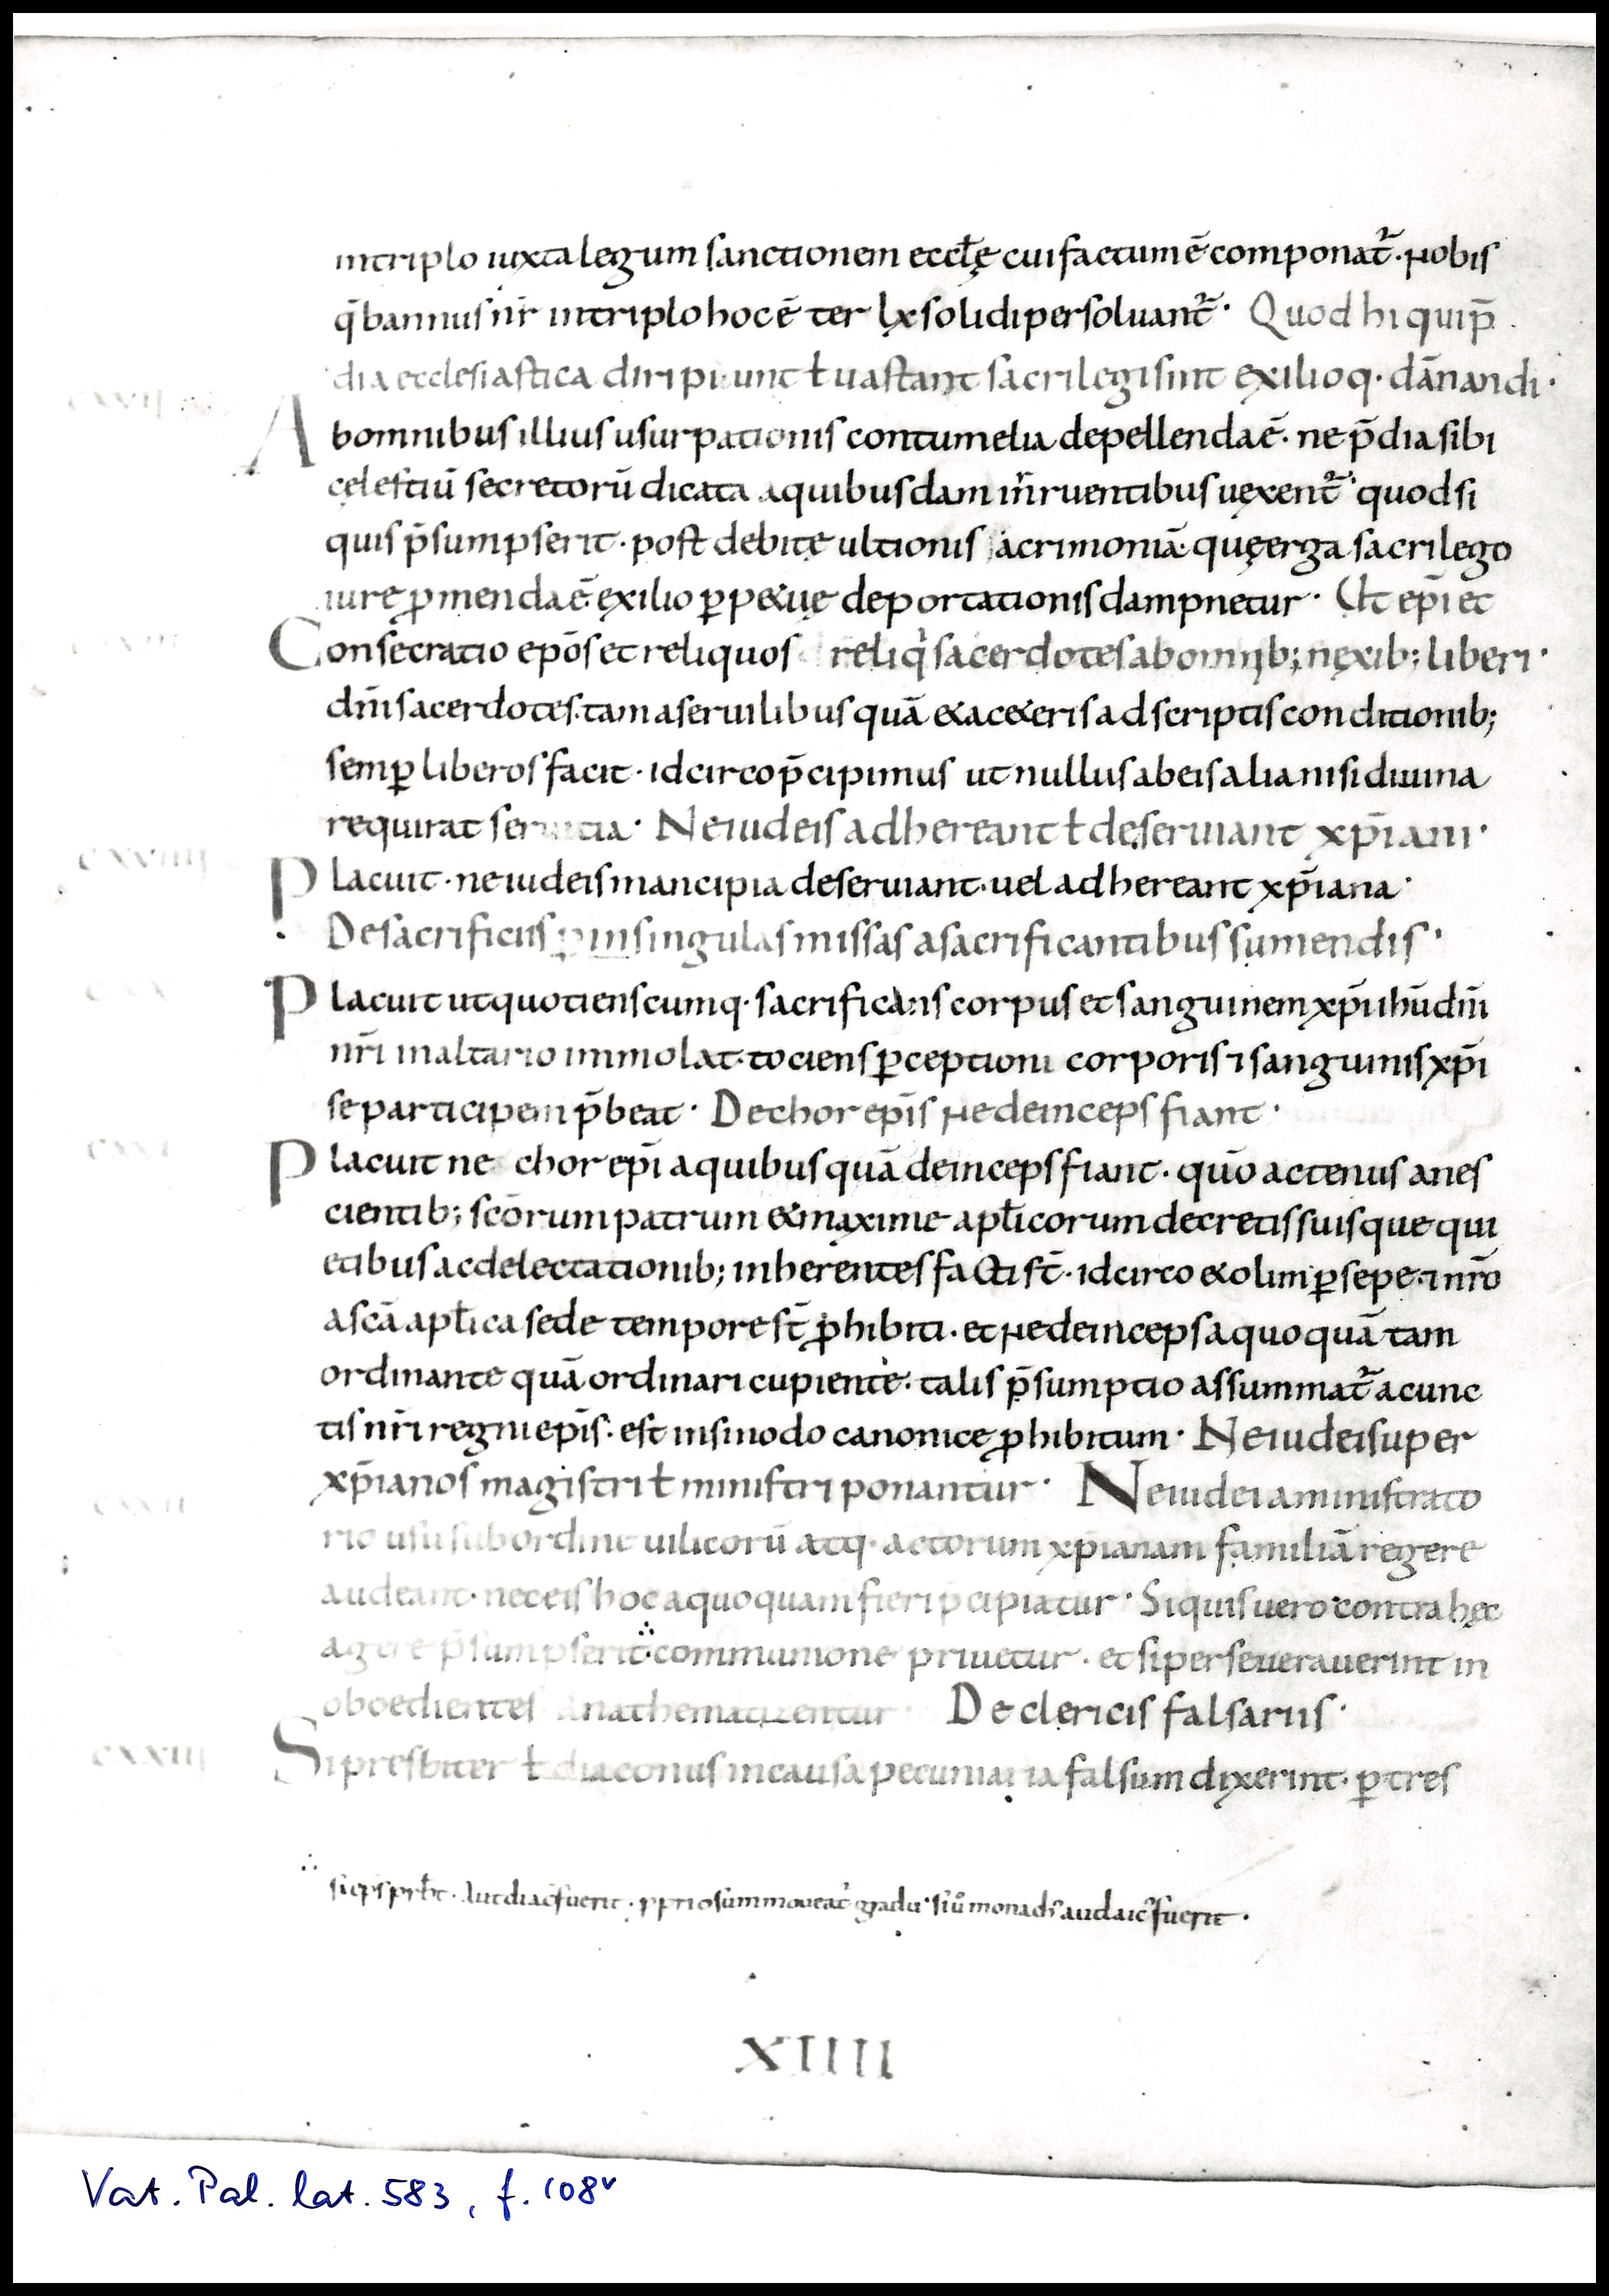 intriplo iuxta legum sanctionem eccłę cui factum ē componat᷑. Nobis
q̄ bannus nr̄ intriplo hoc ē ter lx solidi persoluant᷑. Quod hi qui p̄
dia ecclesiastica diripiunt ł uastant sacrilegi sint exilioq. dānandi.
CXVII
Ab omnibus illius usurpationis contumelia depellenda ē. ne p̄dia sibi
cęlestiū secretorū dicata a quibusdam inr̄ruentibus uexent᷑. quod si
quis p̄sumpserit. post debitę ultionis acrimoniā. quę erga sacrilego
iure ꝓmenda ē. exilio ꝑpetuę deportationis dampnetur. Ut ep̄i et
Consecratio ep̄os et reliquos reliq' sacerdotes ab omnib; nexib; liberi.
dn̄i sacerdotes. tam a seruilibus quā & a ceteris adscriptis conditionib;
semꝑ liberos facit. idcirco p̄cipimus ut nullus ab eis alia nisi diuina
requirat seruitia. Ne iudeis adhereant ł deseruiant xp̄iani.
CXVIIII
Placuit. ne iudeis mancipia deseruiant. uel adhereant xp̄iana.
De sacrificiis ꝑ in singulas missas a sacrificantibus sumendis.
CXX
Placuit ut quotienscumq. sacrificans corpus et sanguinem xp̄i ih̄u dn̄i
nr̄i in altario immolat. tociens ꝑceptioni corporis ⁊ sanguinis xp̄i
se participem p̄beat. De chorep̄is Ne deinceps fiant.
CXXI
Placuit ne chorep̄i a quibus quā deinceps fiant. qūo actenus a nes
cientib; sc̄orum patrum & maxime apłicorum decretis suisque qui
etibus ac delectationib; inherentes facti st̄. idcirco & olim ꝑ sepe. ⁊ nr̄o
a sc̄a apłica sede tempore st̄ ꝓhibiti. et Ne deinceps a quoquā tam
ordinante quā ordinari cupiente. talis p̄sumptio assummat᷑ a cunc
tis nr̄i regni ep̄is. est in sinodo canonice ꝓhibitum. Ne iudei super
xp̄ianos magistri ł ministri ponantur. Ne iudei aministrato
CXXII
rio usu sub ordine uilicorū atq. actorum xp̄ianam familiā regere
audeant. nec eis hoc a quoquam fieri p̄cipiatur. Si quis uero contra hęc
agere p̄sumpserit ∴ communione priuetur. et si perseuerauerint in
oboedientes anathematizentur De clericis falsariis.
CXXIII
Si presbiter ł diaconus in causa pecuniaria falsum dixerint. ꝑ tres
∴ si eps prb̄t. Aut diac̄ fuerit. ꝓprio summoueat᷑ gradu. si ū monach᷑ aud laic᷑ fuerit.
XIIII
Vat. Pal. lat. 583, f. 108v